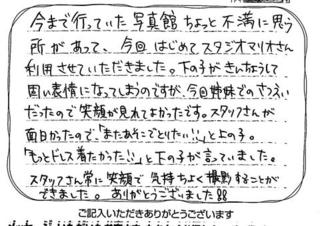 今まで行っていた写真館ちょっと不満に思う
所があって、今回はじめてスタジオマリオさん
利用させていただきました。下の子がきんちょうして
固い表情になってしまうのですが、今回姉妹でのさつえい
だったので笑顔が見れてよかったです。スタッフさんが
面白かったので、「またあそこでとりたい!!」と上の子。
「もっとドレス着たかった!!」と下の子が言っていました。
スタッフさん常に笑顔で気持ちよく撮影することが
できました。ありがとうございました
ご記入いただきありがとうございます